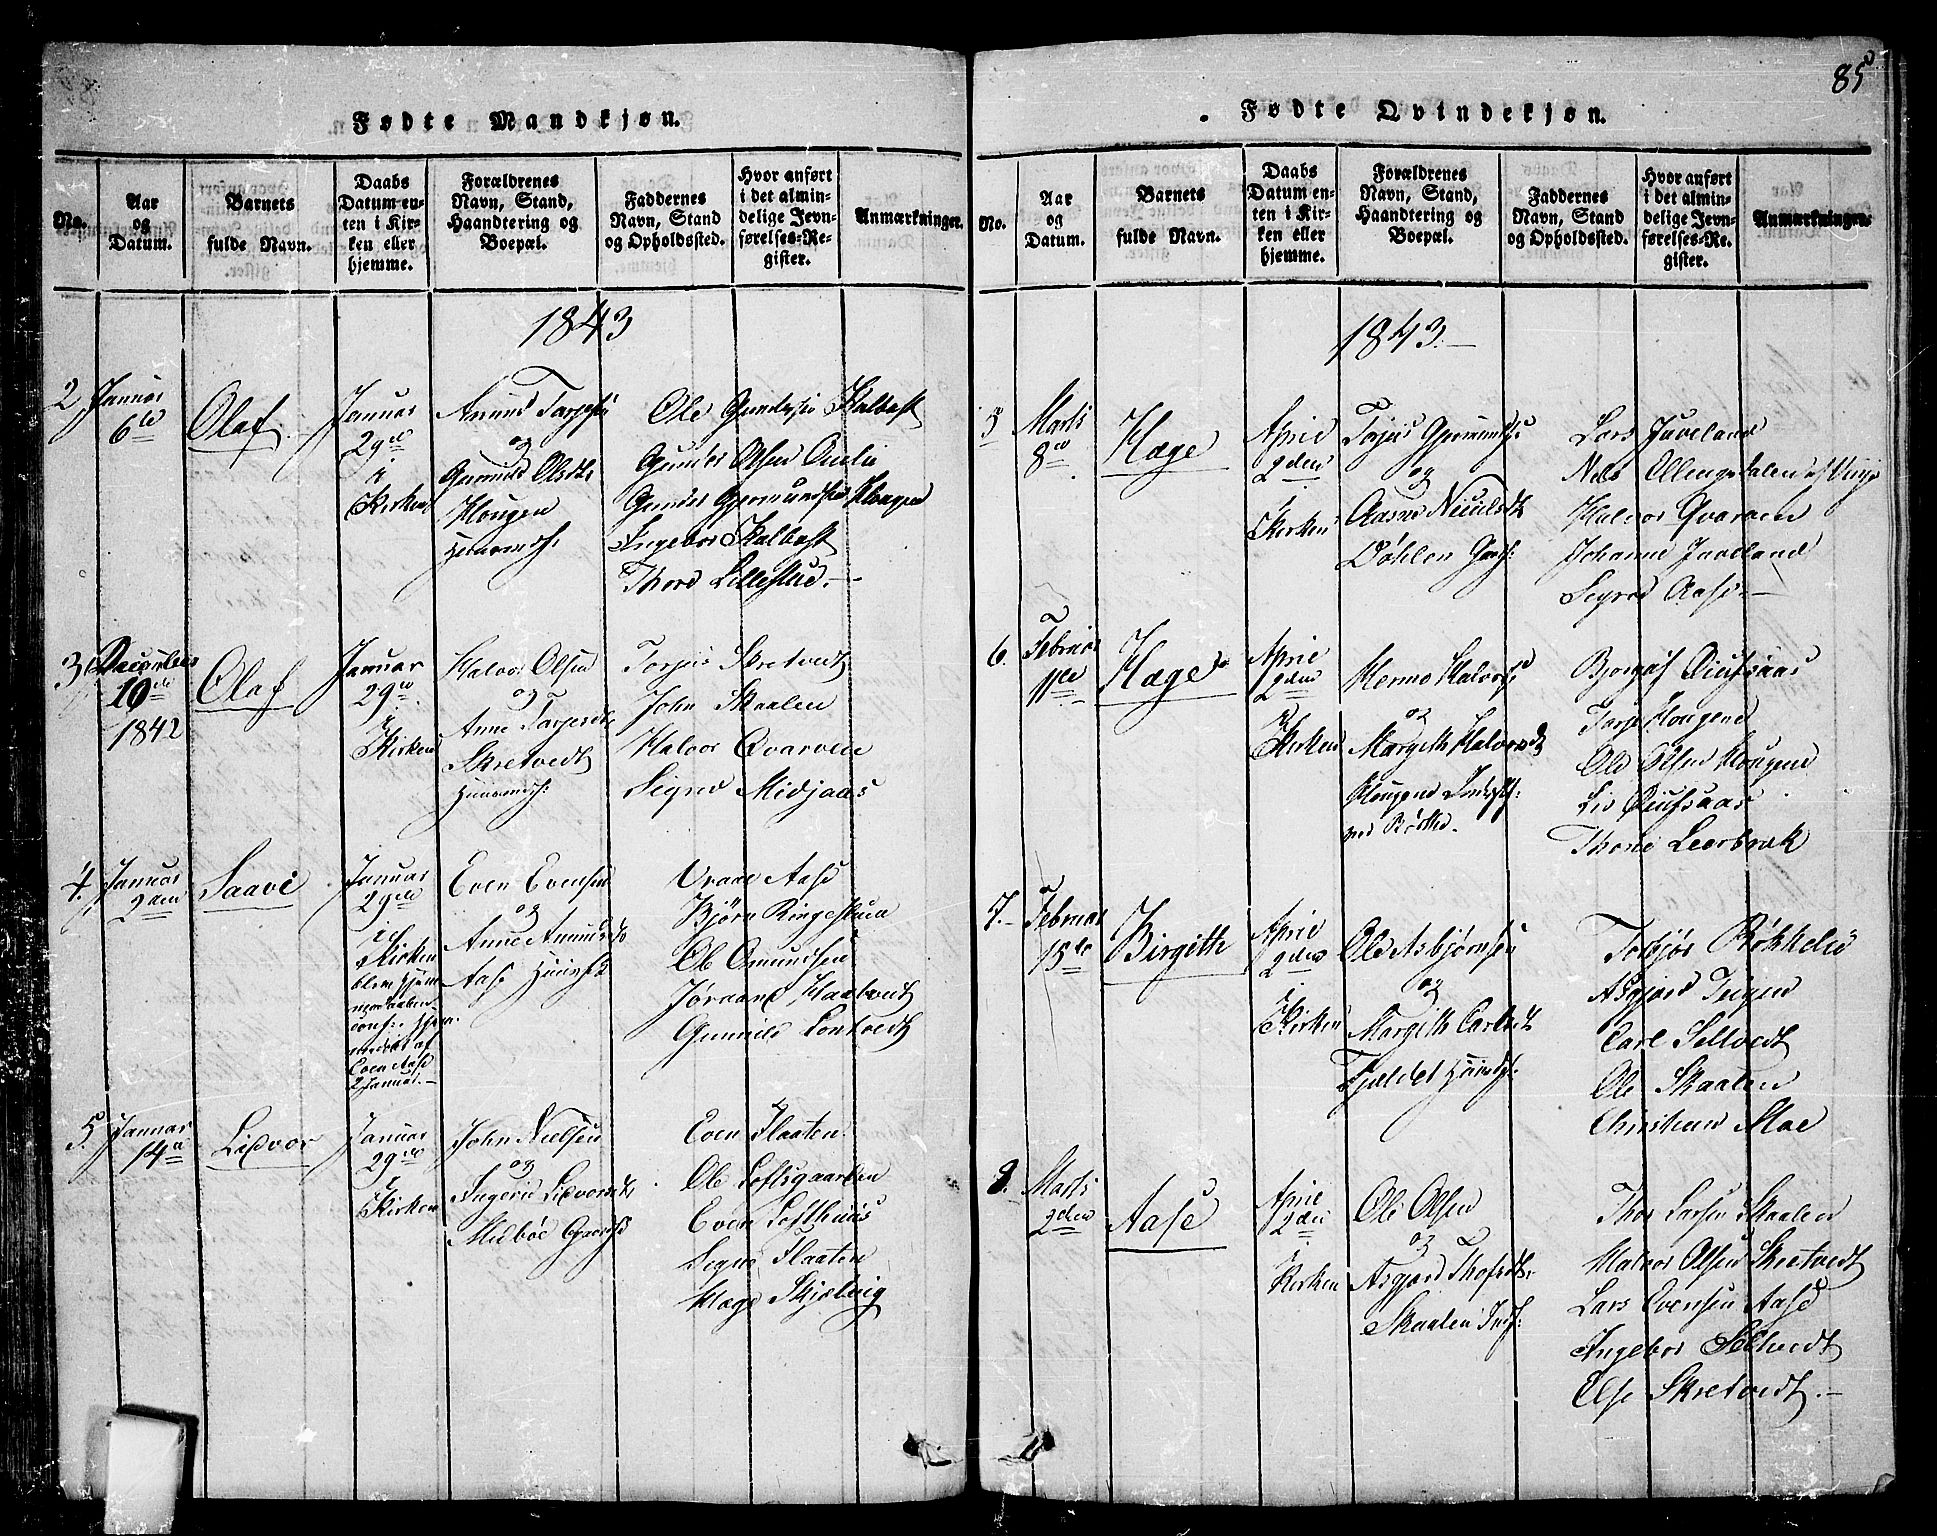 85
Fødte Mandkjøn.
No.
Aar
og
Datum.
Barnets
fulde Navn.
Daabs
Datum en-
ten i Kir-
ken eller
hjemme.
Forældrenes
Navn, Stand,
Haandtering og
Boepæl.
Faddernes
Navn, Stand
og Opholdssted.
Hvor anført
i det almin-
delige Jevn-
førelses-Re-
gister.
Anmærkninger.
1843
2
Januar
6te
Olaf
Januar
29de
i
Kirken
Anund Tarjesen
og
Gunnild Olsdtr
Hougen
Huusmdsf:
Ole Gundersen Kalbast
Gunder Olsen
Gunder Gjermundsen Hougen
Ingebor Kalbast
Thore Lillestue
3
December
10de
1842
Olaf
Januar
29de
i
Kirken
Halvor Olsen
og
Anne Tarjesdtr
Skretvedt
Huusmdsf:
Torjus Skretvedt
John Skaalen
Halvor Qvarven
Signe Midjaas
4.
Januar
2den
Saavi
Januar
29de
i
Kirken
blev hjem-
medaaben
conf:. hjem-
medøbt af
Even Aase
2 Januar.
Even Evensen
og
Anne Anundsdtr
Aase
Vraal Aase
Bjørn Ringestuen
Ole Omundsen
Jøraand Haatvedt
Gunnild Lontvedt
5.
Januar
14de
Lidvor
Januar
29de
i
Kirken
John Nielsen
og
Ingerid Lidvorsdtr
Midbøe
Even Flaaten
Ole Loftsgaarden
Even Lofthuus
Signe Flaaten
Hæge Skjelvig
Fødte Qvindekjøn.
No.
Aar
og
Datum.
Barnets
fulde Navn.
Daabs
Datum en-
ten i Kir-
ken eller
hjemme.
Forældrenes
Navn, Stand,
Haandtering og
Boepæl.
Faddernes
Navn, Stand
og Opholdssted.
Hvor anført
i det almin-
delige Jevn-
førelses-Re-
gister.
Anmærkninger.
1843.
5
Marts
8de
Hæge
April
2den
i
Kirken
Torjus Gjermundsen
og
Aasne Nielsdtr
Bøhlen
Lars Juveland
Nels
Halvor Qvarven
Johanne Juveland
Sigrid Aase
6.
Februar
11te
Hæge
April
2den
i
Kirken
Hermo Halvorsen
og
Margith Halvorsdtr
Hougen
Bjorgulf
Tarje Hougen
Ole Olsen Hougen
Liv
Thone Leerbræk
7.
Februar
15de
Birgith
April
2den
i
Kirken
Ole Asbjørnsen
og
Margith Carlsdtr
Fjeldet
Torbjør
Asgjerd Teigen
Carl Seltvedt
Ole Skaalen
Christian Moe
8.
Marts
2den
Aase
April
2den
i
Kirken
Ole Olsen
og
Asgjerd Thorsdtr
Skaalen
Thor Larsen Skaalen
Halvor Olsen Skretvedt
Lars Evensen Aase
Ingebor Seltvedt
Else Skretvedt